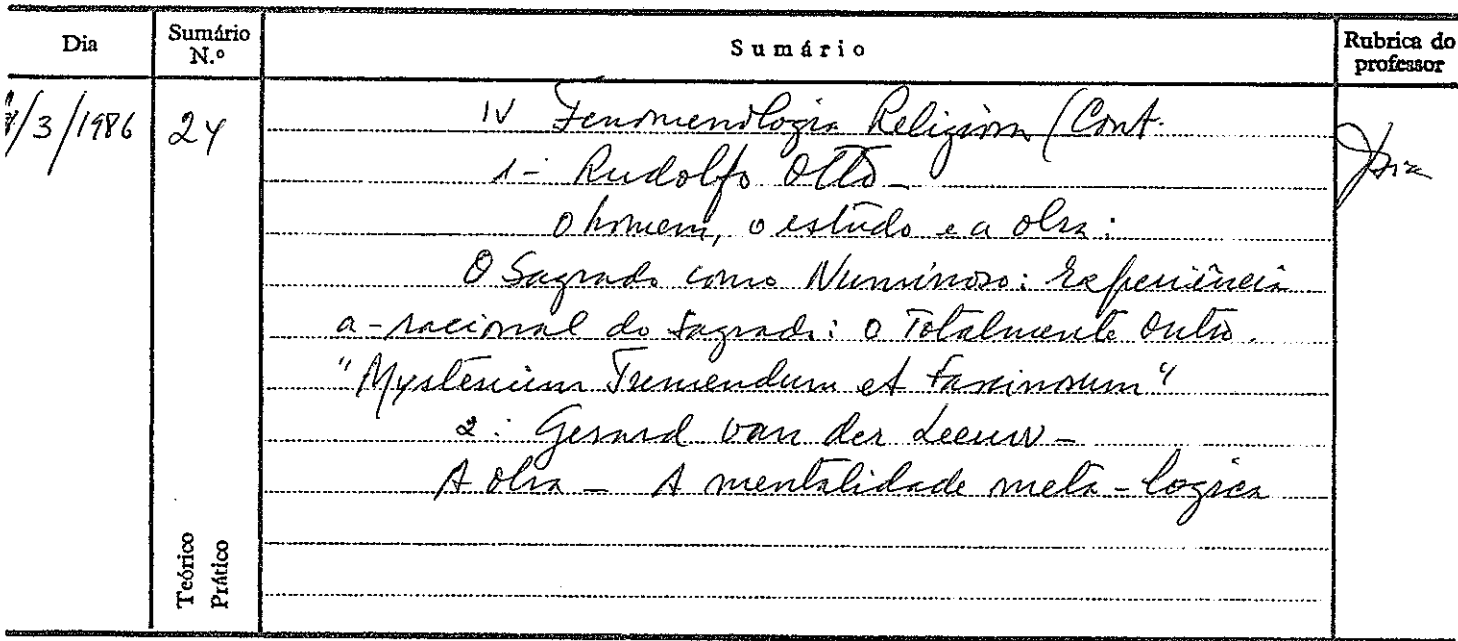 Dia
Sumário N.º
Sumário
Rubrica do professor
/3/1986
24
IV Fenomenologia Religiosa (Cont.
1- Rudolfo Otto -
O homem, o estudo e a obra:
O Sagrado como Numinoso: Experiência
a-racional do Sagrado: O Totalmente Outro.
"Mysterium Tremendum et Fascinosum"
2: Gerard van der Leeuw -
A obra - A mentalidade meta-logica
Teórico
Prático